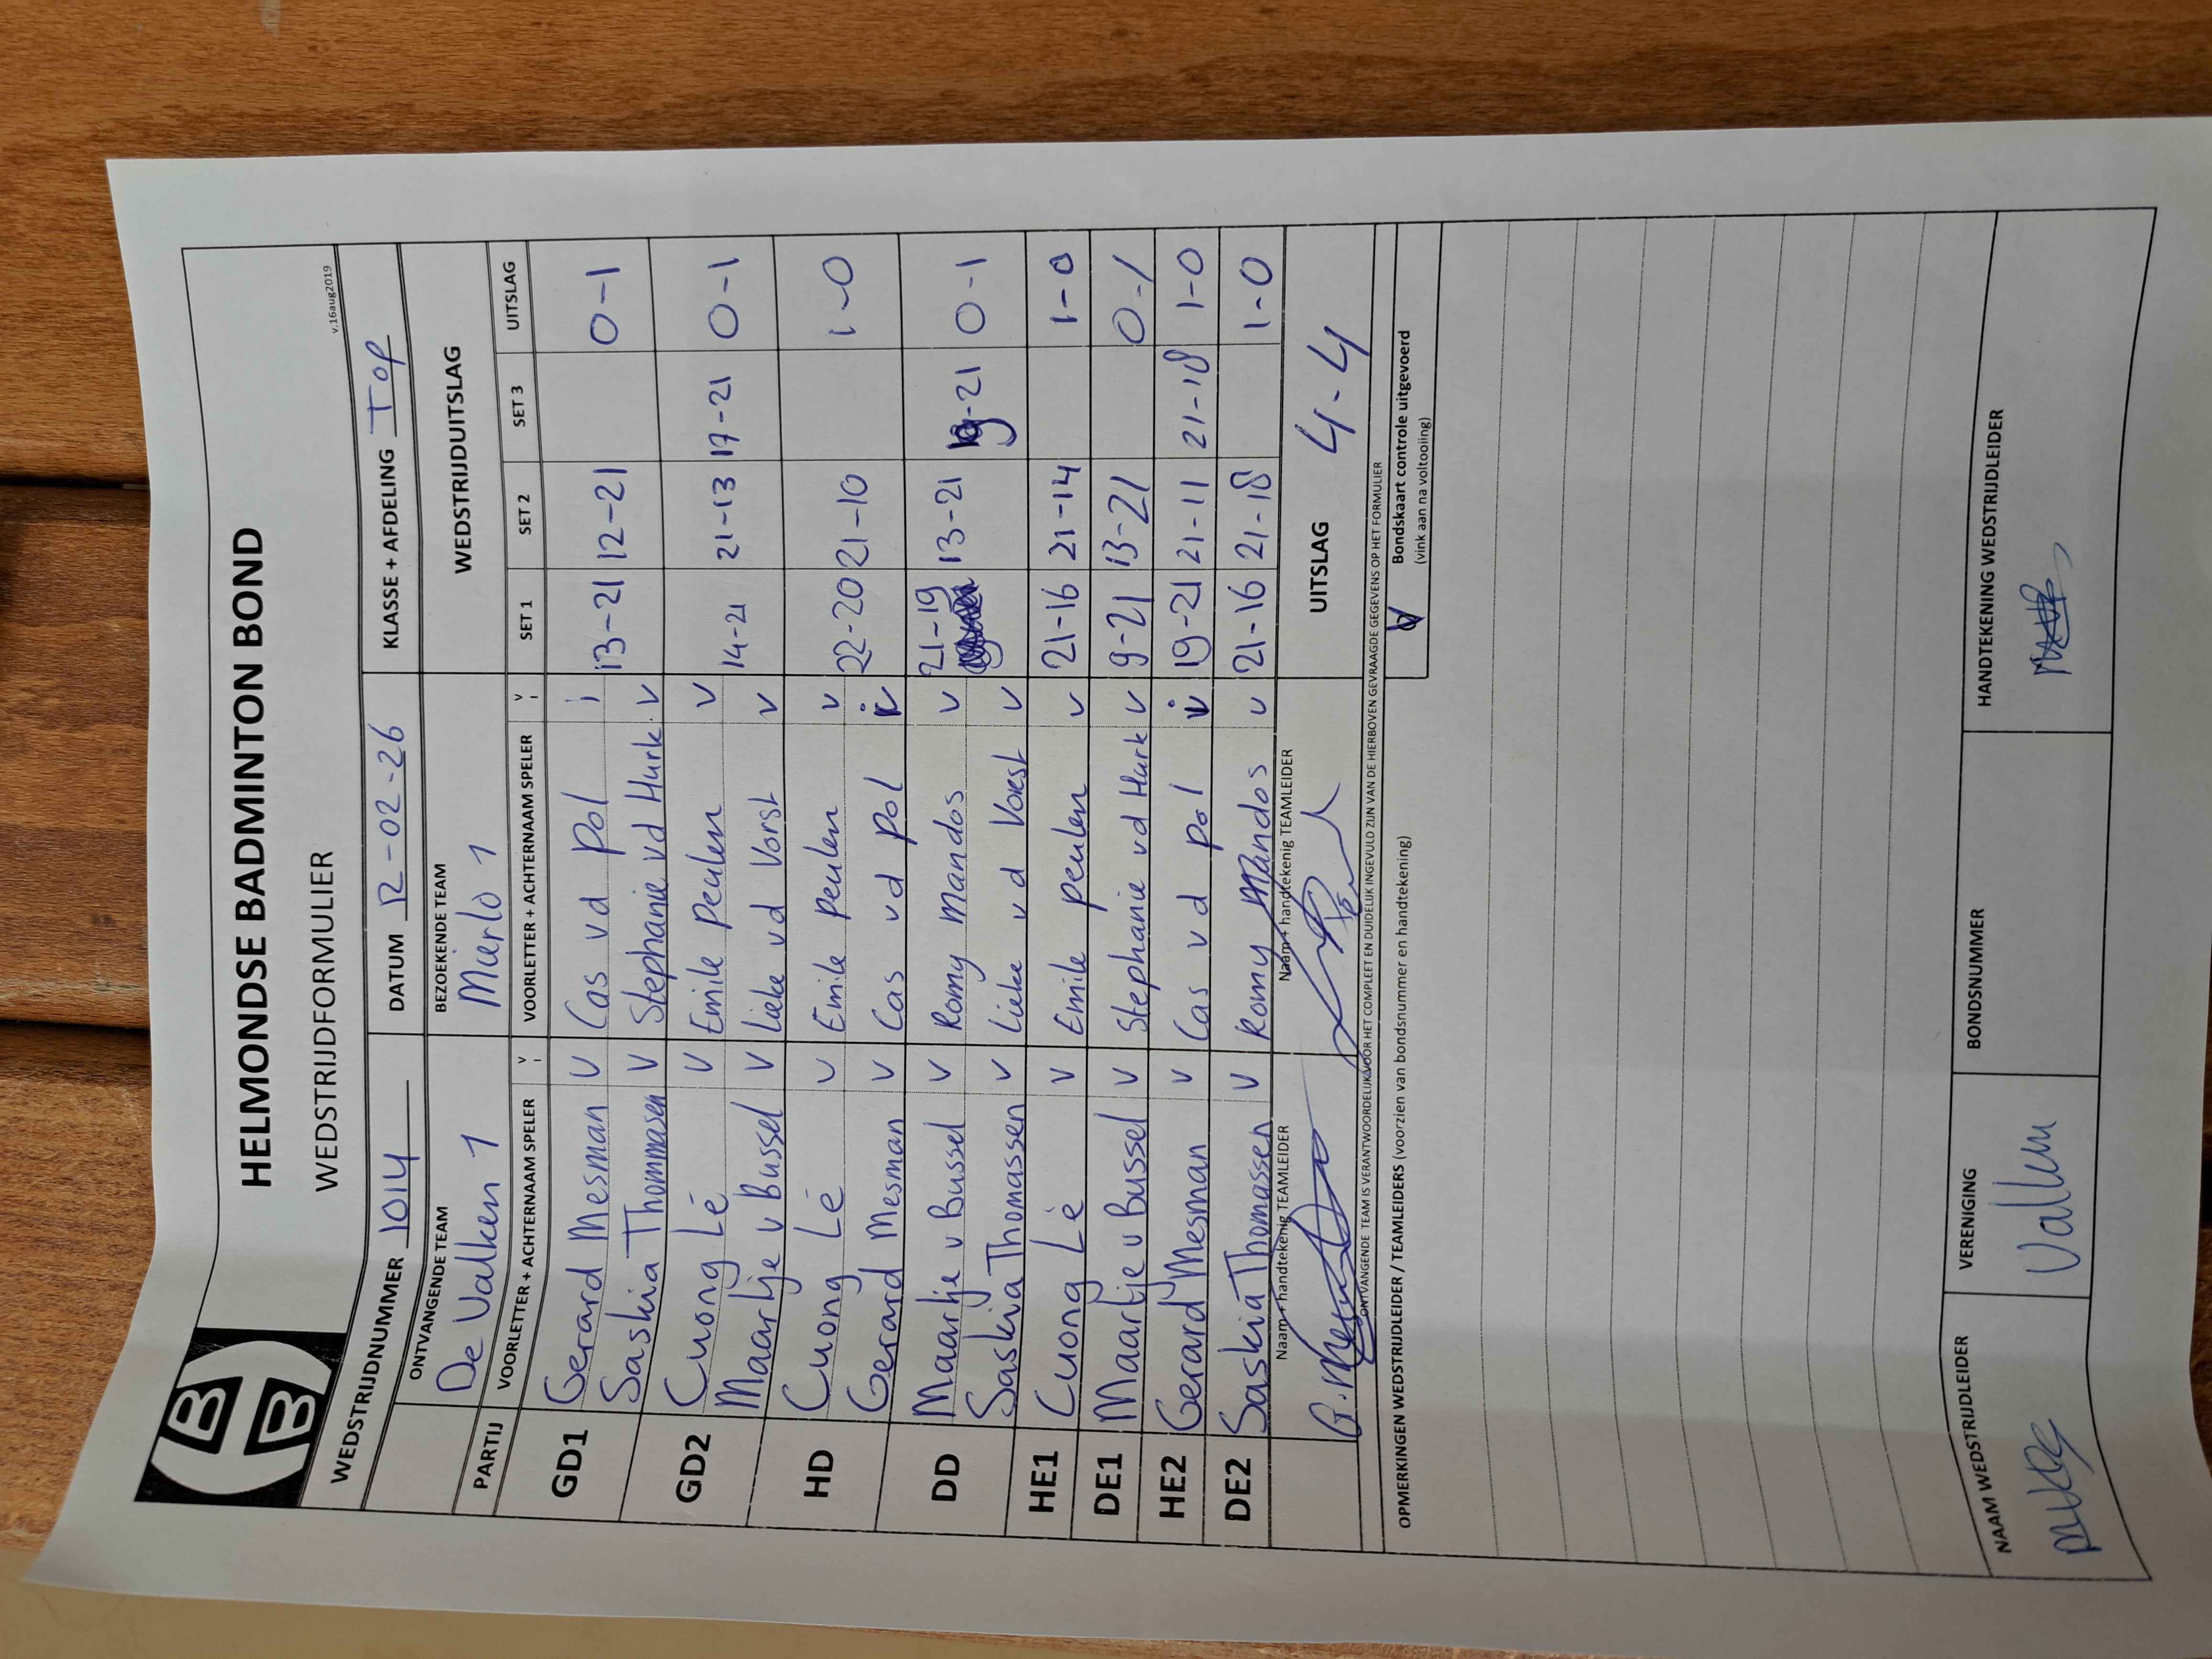 HELMONDSE BADMINTON BOND
WEDSTRIJDFORMULIER
v.16aug2019
WEDSTRIJDNUMMER 1014 DATUM 12-02-26 KLASSE + AFDELING Top
ONTVANGENDE TEAM BEZOEKENDE TEAM WEDSTRIJDUITSLAG
De Valken 1 Mierlo 1
PARTIJ VOORLETTER + ACHTERNAAM SPELER V VOORLETTER + ACHTERNAAM SPELER V SET 1 SET 2 SET 3 UITSLAG
GD1 Gerard Mesman v Cas vd Pol i 13-21 12-21 0-1
Saskia Thommasen v Stephanie vd Hurk v
GD2 Cuong Lé v Emile Peulen v 14-21 21-13 17-21 0-1
Maartje v Bussel v Lieke vd Vorst v
HD Cuong Lé v Emile Peulen v 22-20 21-10 1-0
Gerard Mesman v Cas vd Pol v
DD Maartje v Bussel v Romy Mandos v 21-19 13-21 19-21 0-1
Saskia Thomassen v Lieke vd Vorst v
HE1 Cuong Lé v Emile Peulen v 21-16 21-14 1-0
DE1 Maartje v Bussel v Stephanie vd Hurk v 9-21 13-21 0-1
HE2 Gerard Mesman v Cas vd Pol v 19-21 21-11 21-18 1-0
DE2 Saskia Thomassen v Romy Mandos v 21-16 21-18 1-0
Naam + handtekenig TEAMLEIDER Naam + handtekenig TEAMLEIDER UITSLAG 4-4
G. Mesman
ONTVANGENDE TEAM IS VERANTWOORDELIJK VOOR HET COMPLEET EN DUIDELIJK INGEVULD ZIJN VAN DE HIERBOVEN GEVRAAGDE GEGEVENS OP HET FORMULIER
OPMERKINGEN WEDSTRIJDLEIDER / TEAMLEIDERS (voorzien van bondsnummer en handtekening)
Bondskaart controle uitgevoerd
(vink aan na voltooiing)
NAAM WEDSTRIJDLEIDER VERENIGING BONDSNUMMER HANDTEKENING WEDSTRIJDLEIDER
Valken